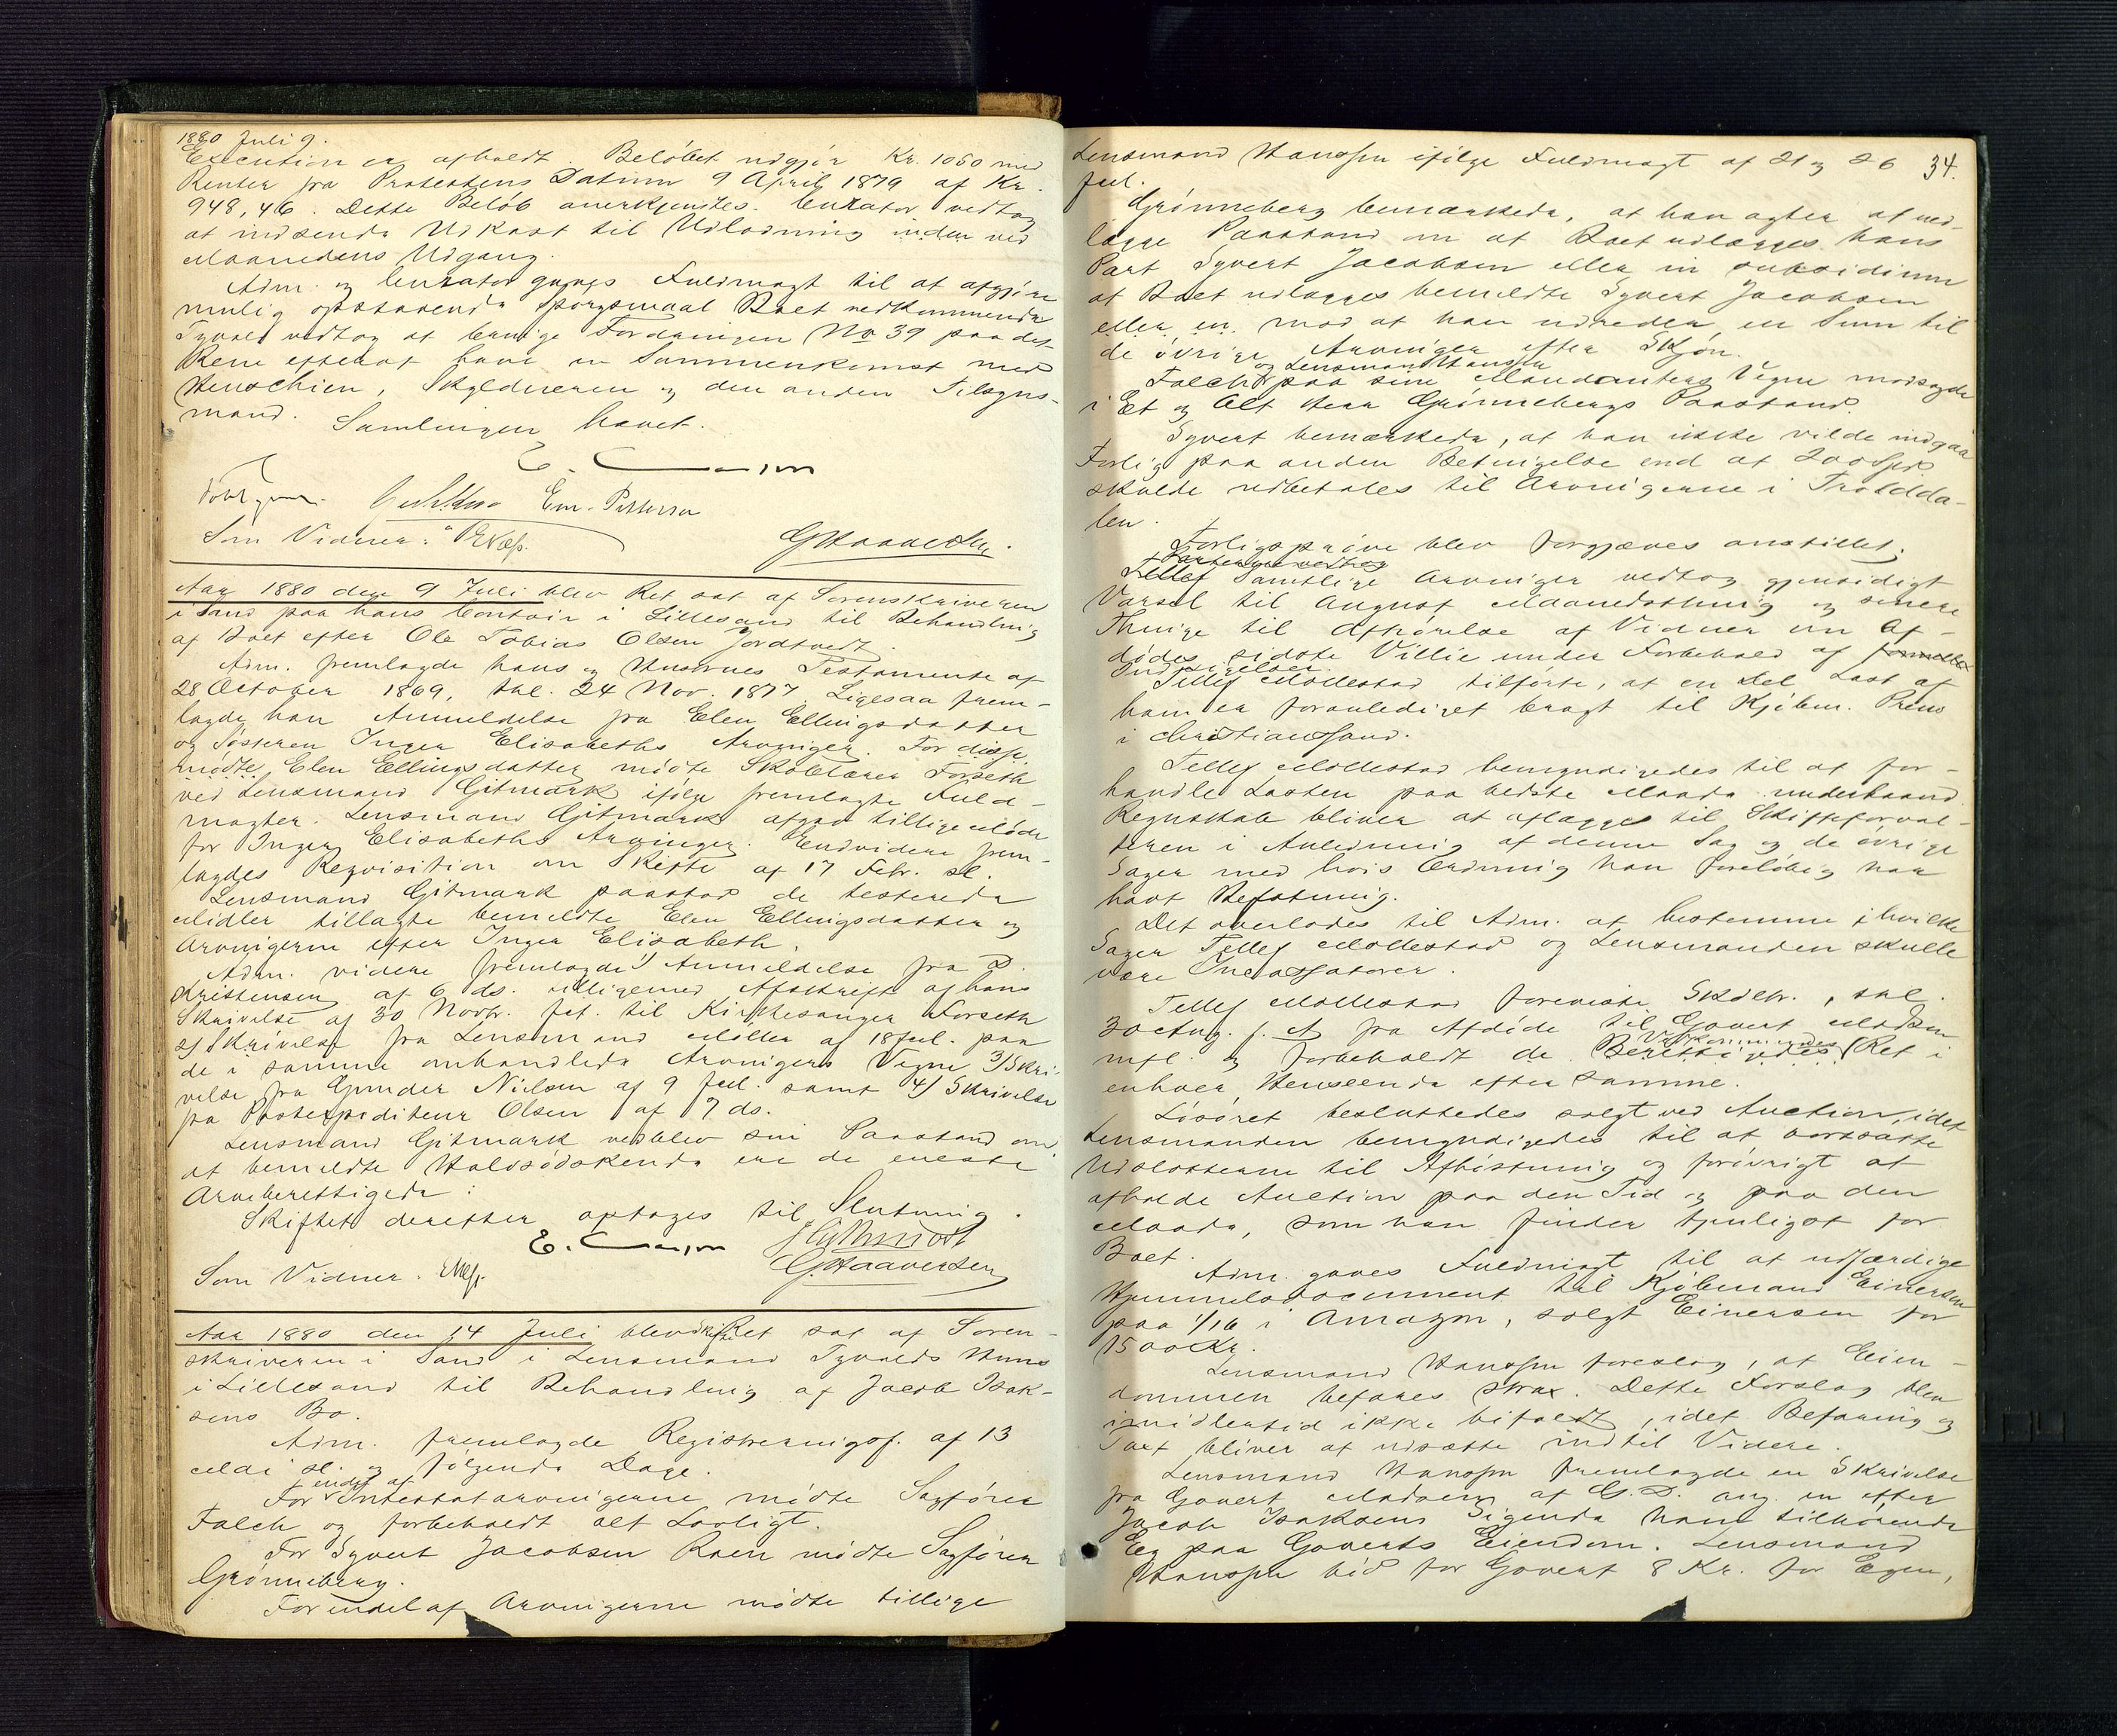 1880 Juli 9.
Execution er afholdt. Beløbet udgjør Kr. 1050 med
Renter fra Protestens Datum 9 April 1879 af Kr.
948,46. Dette Beløb anerkjendtes. Curator vedtog
at indsende Udkast til Udlodning inden ved
Maanedens Udgang.
Adm. og Curator gaves Fuldmagt til at afgjøre
mulig opstaaende Spørgsmaal Boet vedkommende
Tyvold vedtog at berige Fordringen No 39 paa det
Rene efterat have en Sammenkomst med
Henschien, Skyldneren og den anden Tilsyns-
mand. Samlingen hævet.
E.
Em. Petterson
Som Vidner:
G Haaversen.
Aar 1880 den 9 Juli blev Ret sat af Sorenskriveren
i Sand paa hans Contoir i Lillesand til Behandling
af Boet efter Ole Tobias Olsen Jordtvedt.
Adm. fremlagde hans og Hustrues Testamente af
28 October 1869, thl. 24 Nov. 1877. Ligesaa frem-
lagde han Anmeldelse fra Elen Ellingsdatter
og Søsteren Inger Elisabeths Arvinger. For disse
mødte Elen Ellingsdatter mødte Skolelærer Forseth
ved Lensmand Gitmark ifølge fremlagte Fuld-
magter. Lensmand Gitmark afgav tillige Møde
for Inger Elisabeths Arvinger. Endvidere frem-
lagdes Reqvisition om Skifte af 17 Febr. sl.
Lensmand Gitmark paastod de testerede
Midler tillagte bemeldte Elen Ellingsdatter og
Arvingerne efter Inger Elisabeth.
Adm. videre fremlagde 1) Anmeldelse fra D.
Kristensen af 6 ds. tilligemed Afskrift af hans
Skrivelse af 30 Novbr. f.A. til Kirkesanger Forseth
2) Skrivelse fra Lensmand Møller af 18 Jul. paa
de i samme omhandlede Arvingers Vegne 3) Skri-
velse fra Gunder Nielsen af 9 Jul. samt 4) Skrivelse
fra Postexpediteur Olsen af 7 ds.
Lensmand Gitmark vedblev sin Paastand om
at bemeldte Halvsødskende ere de eneste
Arveberettigede:
Skiftet derefter optoges til Slutning.
E.
Som Vidner.
G. Haaversen
Aar 1880 den 14 Juli blev Skifteret sat af Soren-
skriveren i Sand i Lensmand Tyvolds Huus
i Lillesand til Behandling af Jacob Isak-
sens Bo.
Adm. fremlagde Registreringsf. af 13
Mai sl. og følgende Dage.
endel af
For Intestatarvingerne mødte Sagfører
Falch og forbeholdt alt Lovligt.
For Syvert Jacobsen Roen mødte Sagfører
Grønneberg.
For endel af Arvingerne mødte tillige
34.
Lensmand Hanssen ifølge Fuldmagt af 21 og 26
Jul.
Grønneberg bemærkede, at han agter at ned-
lægge Paastand om at Boet udlægges hans
Part Syvert Jacobsen eller in subsidium
at Boet udlægges bemeldte Syvert Jacobsen
eller en mod at han udreder en Sum til
de øvrige Arvinger efter Skjøn.
og Lensmand Hanssen
Falch paa sine Mandanters Vegne modsagde
i Et og Alt Herr Grønnebergs Paastand.
Syvert bemærkede, at han ikke vilde indgaa
Forlig paa anden Betingelse end at 200 Spd
skulde udbetales til Arvingerne i Troldda-
len.
Forligsprøve blev forgjæves anstillet.
Parterne vedtog
Tellef Samtlige Arvinger vedtog gjensidigt
Varsel til August Maanedsthing og senere
Thinge til Afhørelse af Vidner om Af-
dødes sidste Villie under Forbehold af
Indsigelser.
Tellef Mollestad tilførte, at en Del Last af
ham er foranlediget bragt til Kjøbm. Preus
i Christianssand.
Tellef Mollestad bemyndigedes til at for-
handle Lasten paa bedste Maade underhaand.
Regnskab bliver at aflægges til Skifteforval-
teren i Anledning af denne Sag og de øvrige
Sager med hvis Ordning han foreløbig har
havt Befatning.
Det overlodes til Adm. at bestemme i hvilke
Sager Tellef Mollestad og Lensmanden skulle
være Incassatorer.
Tellef Mollestad foreviste Skdbr., thl.
30 Aug. f. A fra Afdøde til Govert Madsen
Vedkommendes
mfl. og forbeholdt de Berettigedes Ret i
enhver Henseende efter Samme.
Løsøret besluttedes solgt ved Auction, idet
Lensmanden bemyndigedes til at bortsætte
Udslotterne til Afhøstning og forøvrigt at
afholde Auction paa den Tid og paa den
Maade, som han finder tjenligst for
Boet.
Adm. gaves Fuldmagt til at udfærdige
Hjemmelsdocument til Kjøbmand Einersen
paa 1/16 i Amazon, solgt Einersen for
1500 Kr.
Lensmand Hanssen foreslog, at Eien-
dommen befares strax. Dette Forslag blev
imidlertid ikke bifaldt, idet Befaring og
Taxt bliver at udsætte indtil Videre.
Lensmand Hanssen fremlagde en Skrivelse
fra Govert Madsen af G. D. ang. en efter
Jacob Isaksens Sigende ham tilhørende
Eg paa Goverts Eiendom. Lensmand
Hanssen bød for Govert 8 Kr. for Egen,